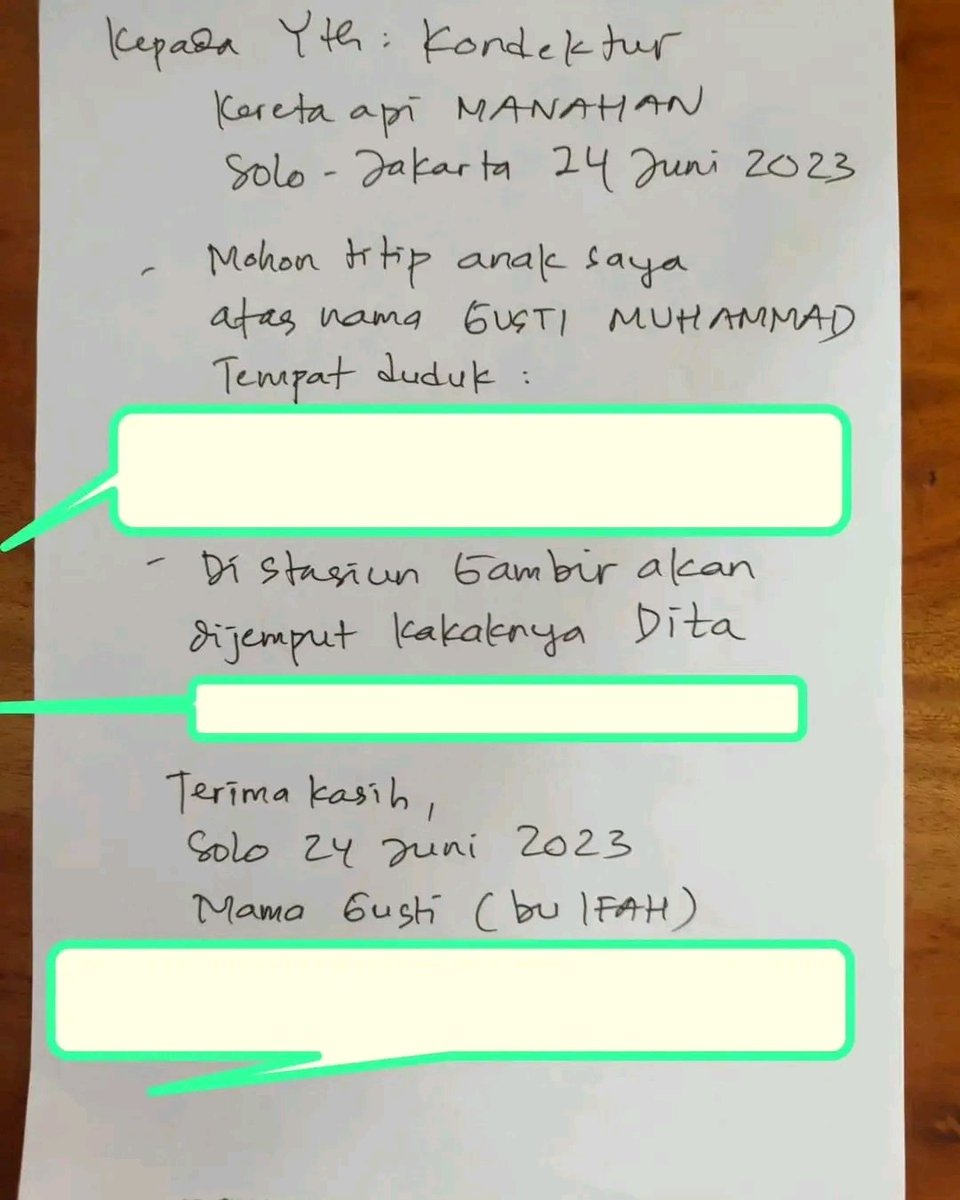 Kepada Yth: Kondektur
Kereta api MANAHAN
Solo - Jakarta 24 Juni 2023
- Mohon titip anak saya
atas nama GUSTI MUHAMMAD
Tempat duduk :
- Di stasiun Gambir akan
dijemput kakaknya Dita
Terima kasih,
Solo 24 Juni 2023
Mama Gusti (bu IFAH)